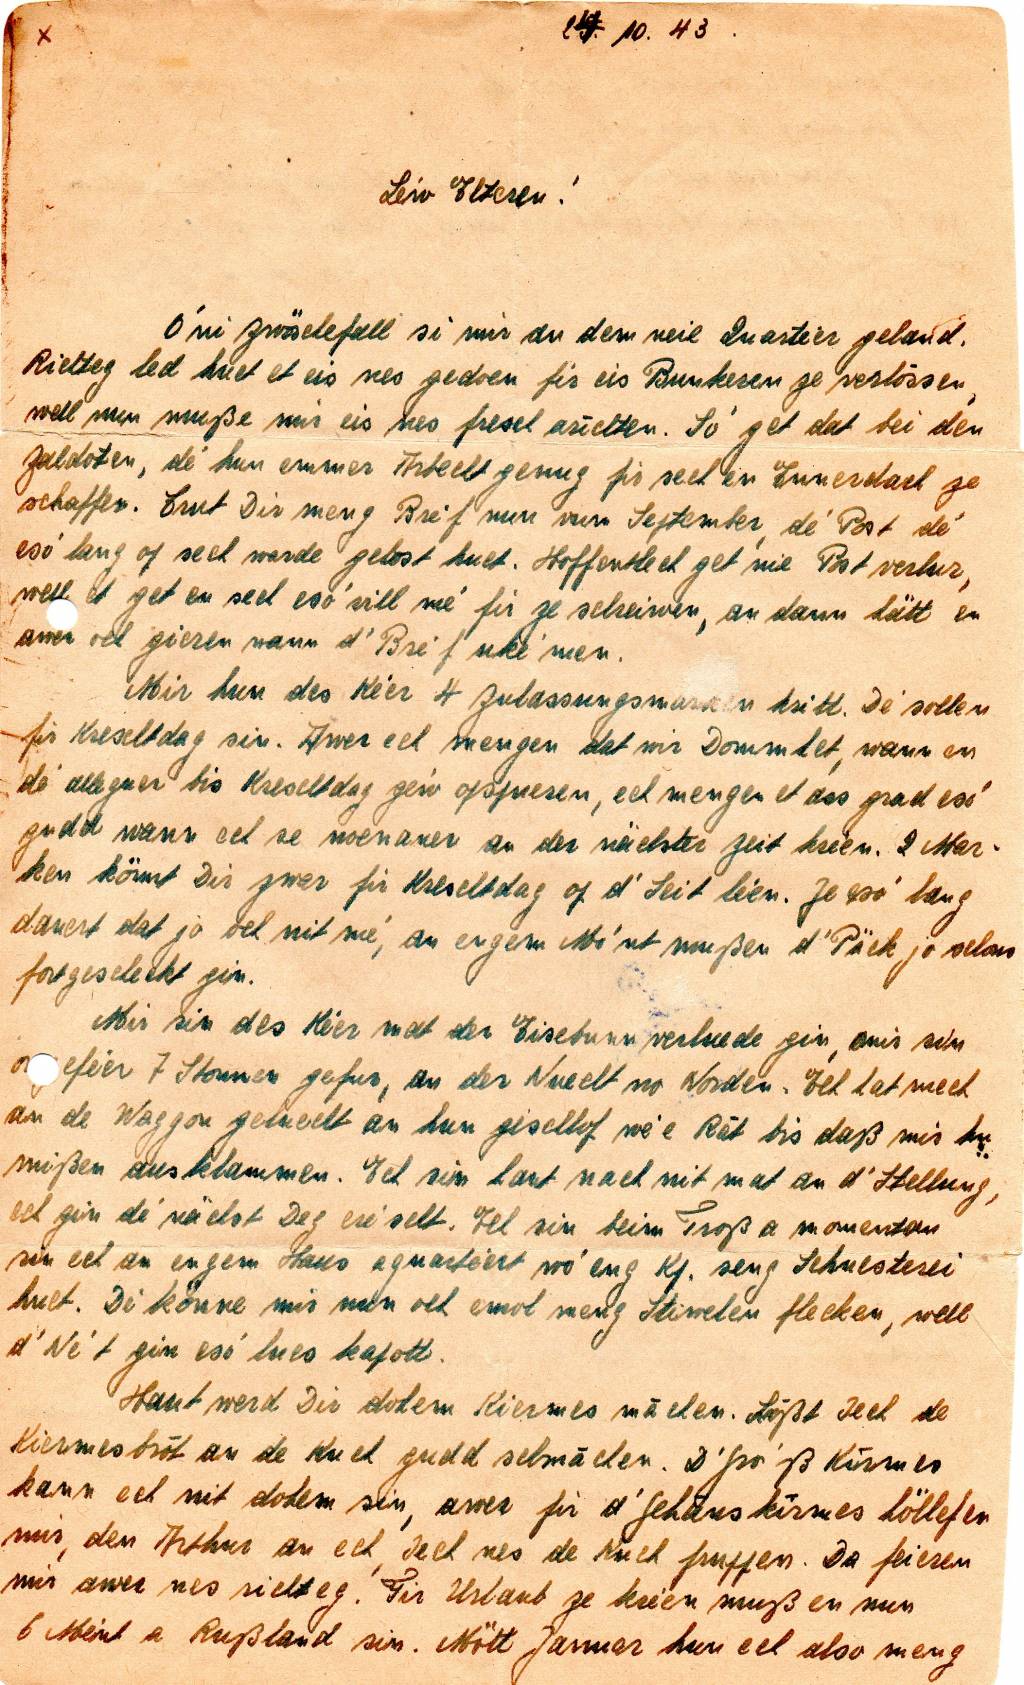 x
24. 10. 43.
Léiw Elteren!
O'ni Zwëschefall si mir an dem neie Quartéer geland.
Richteg led huet et eis nes gedoen fir eis Bunkeren ze verlossen,
well nun muße mir eis nes fresch arichten. Só get dat bei den
Zaldoten, dé hun emmer Arbecht genug fir sech en Ennerdach ze
schaffen. Krut Dir meng Bréif nun vum September, dé Post dé
esó lang op sech warde gelost huet. Hoffentlech get nie Post verlur,
well et get en sech esó vill mé fir ze schreiwen, an dann hätt en
awer och gieren wann d' Bréif ukémen.
Mir hun des Kéer 4 Zulassungsmarken kritt. Dé sollen
fir Kreschtdag sin. Awer ech mengen dat wir Dommhet, wann en
dé alleguer bis Kreschtdag géiw opspueren, ech mengen et ass grad esó
gudd wann ech se noenaner an der nächster Zeit kréien. 2 Mar-
ken könnt Dir zwar fir Kreschtdag op d' Seit léen. Je esó lang
dauert dat jo och nit mé, an engem Mó'nt mußen d' Päck jo schons
fortgescheckt gin.
Mir sin des Kéer mat der Eisebunn verluede gin, mir sin
ongeféer 7 Stonnen gefur, an der Nuecht no Norden. Ech hat mech
an de Waggon geluecht an hun geschlof wé e Rat bis daß mir hu
mißen ausklammen. Ech sin haut nach nit mat an d' Stellung,
ech gin dé nächst Deg eréischt. Ech sin beim Troß a momentan
sin ech an engem Haus aquartéert wó eng Kp. seng Schuesterei
huet. Dé könne mir nun och emol meng Stiwelen flecken, well
d' Né't gin esó lues kapott.
Haut werd Dir dohem Kiermes mächen. Lößt Iech de
Kiermesbrot an de Kuch gudd schmächen. D' Gró'ß Kirmes
kann ech nit dohem sin, awer fir d' Gehanskirmes höllefen
mir, den Arthur an ech, Iech nes de Kuch fruppen. Da feieren
mir awer nes richteg! Fir Urlaub ze kréien muß en nun
6 Mé'nt a Rußland sin. Mött Januar hun ech also meng